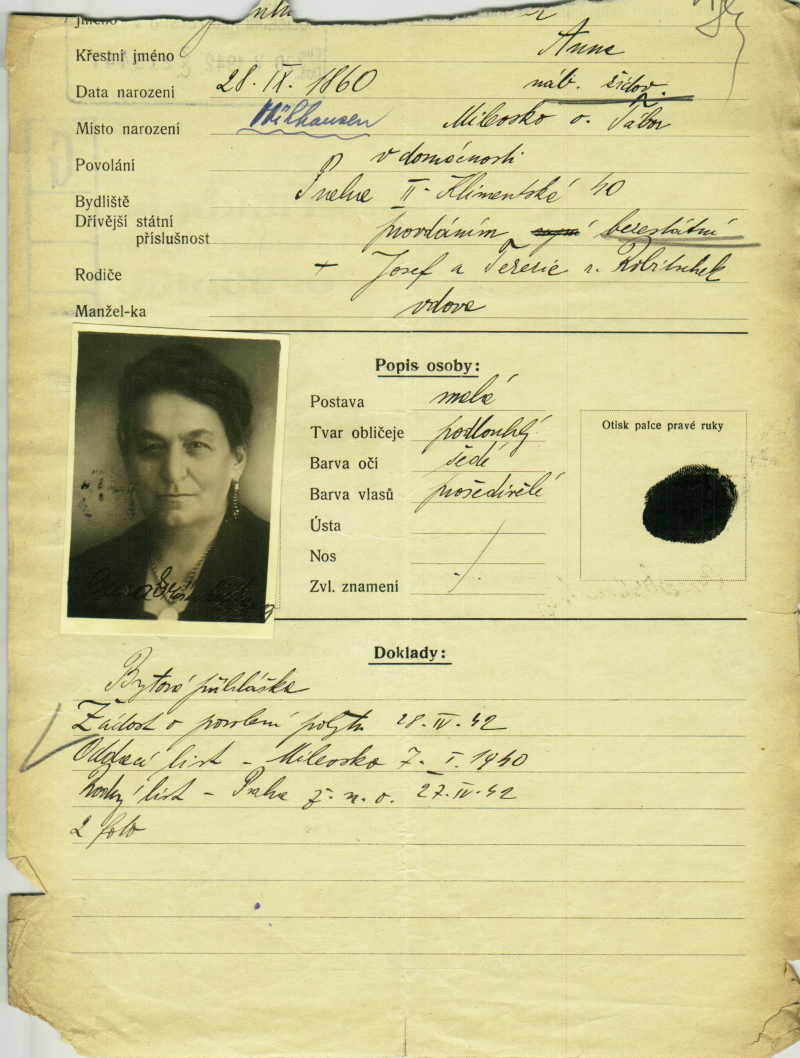 Jméno
Křestní jméno Anna
Data narození 28. IX. 1860 náb. židov.
Místo narození Mühlhausen Milevsko o. Tábor
Povolání v domácnosti
Bydliště Praha II - Klimentská 40
Dřívější státní
příslušnost provdáním bezestátní
Rodiče + Josef a Terezie r.
Manžel-ka vdova
Popis osoby:
Postava malá
Tvar obličeje podlouhlý
Barva očí šedé
Barva vlasů prošedivělé
Ústa
Nos
Zvl. znamení
Otisk palce pravé ruky
Doklady:
Bytová přihláška
Žádost o povolení pobytu 28. IV. 42
Oddací list - Milevsko 7. I. 1940
list - Praha ž. n. o. 27. IV. 42
2 foto